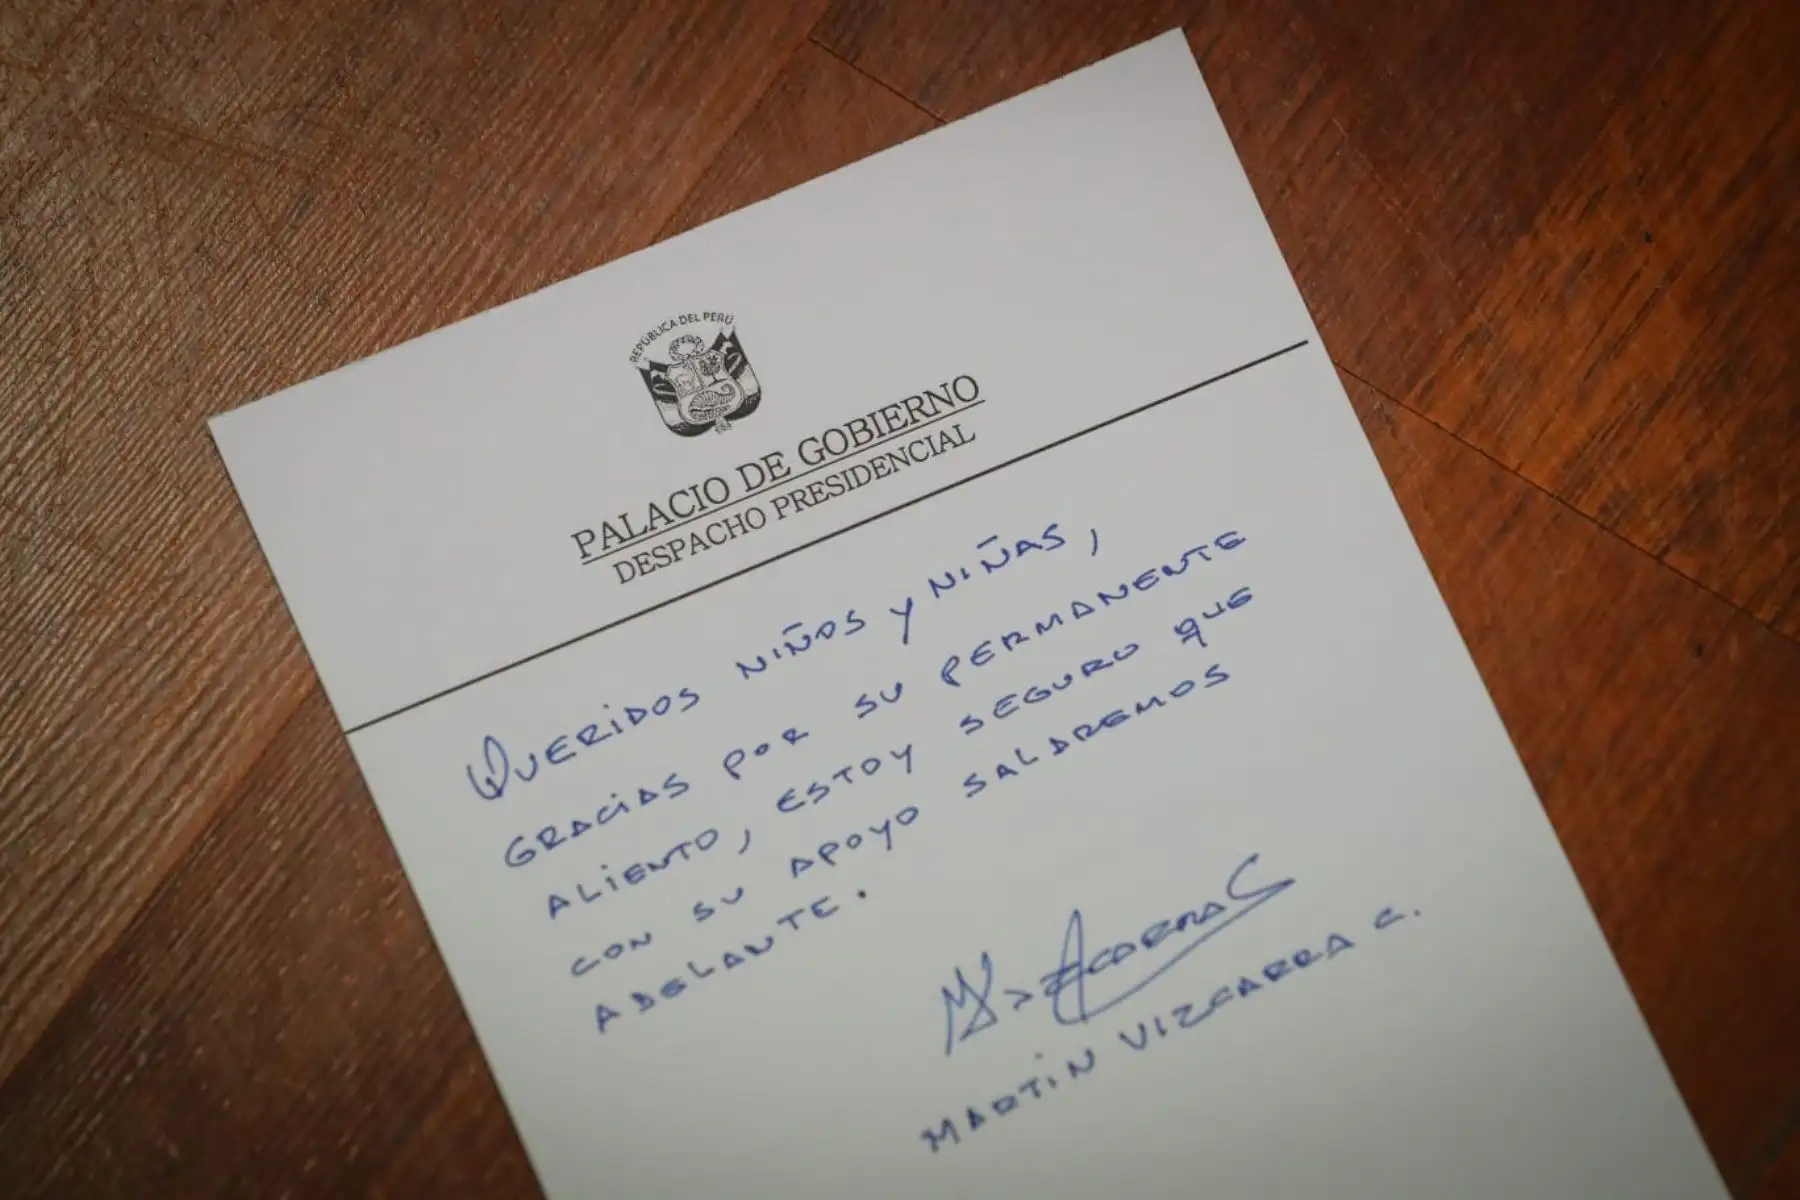 REPÚBLICA DEL PERÚ
PALACIO DE GOBIERNO
DESPACHO PRESIDENCIAL
QUERIDOS NIÑOS Y NIÑAS,
GRACIAS POR SU PERMANENTE
ALIENTO, ESTOY SEGURO QUE
CON SU APOYO SALDREMOS
ADELANTE.
MARTIN VIZCARRA C.